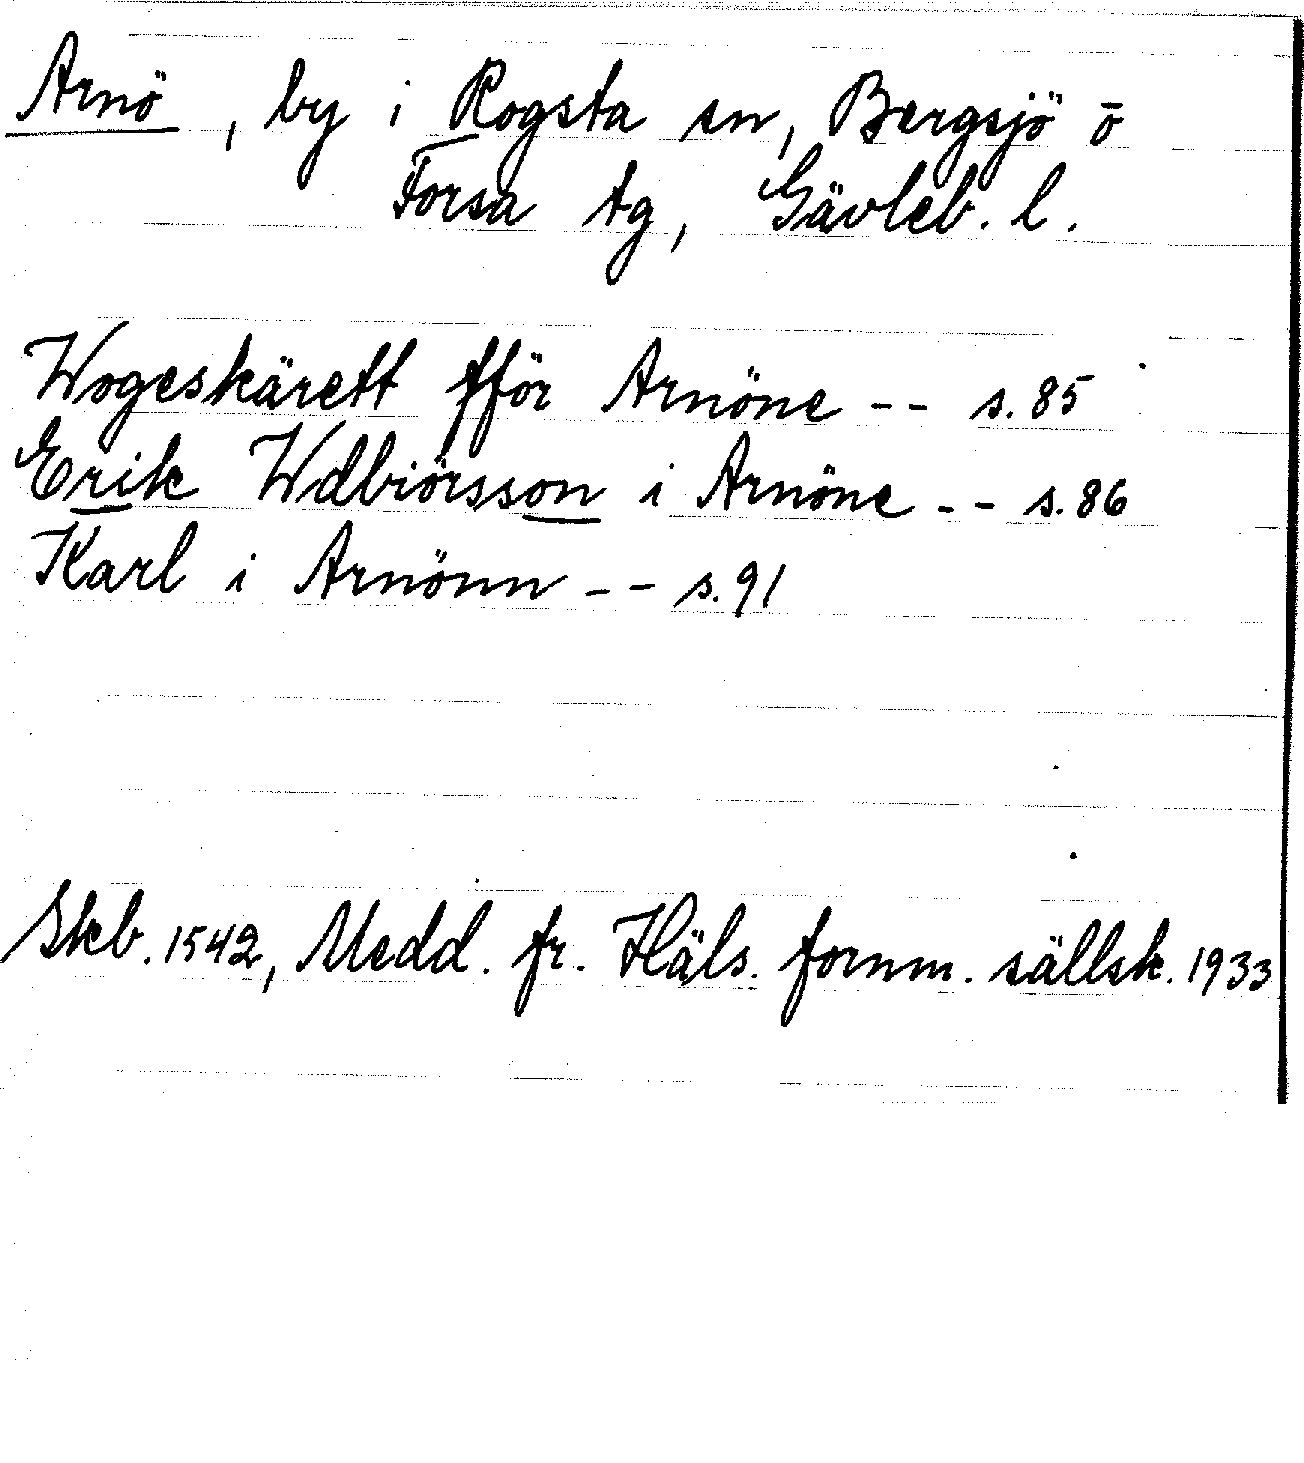 Arnö, by i Rogsta sn, Bergsjö o
Forsa tg, Gävleb. l.
Wogeskärett fför Arnöne -- s. 85
Erik Wdbiörsson i Arnöne -- s. 86
Karl i Arnönn -- s. 91
Skb. 1542, Medd. fr. Häls. fornm. sällsk. 1933